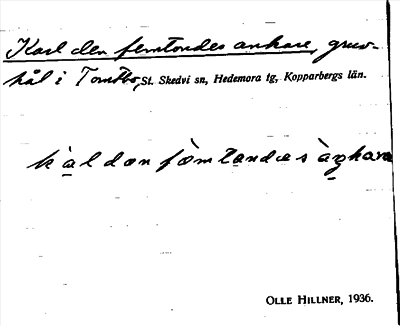 Karl den femtondes ankare, gruv-
hål i Tomtbo, St. Skedvi sn, Hedemora tg, Kopparbergs län.
kal dən fèmtandəs àŋkarə
OLLE HILLNER, 1936.